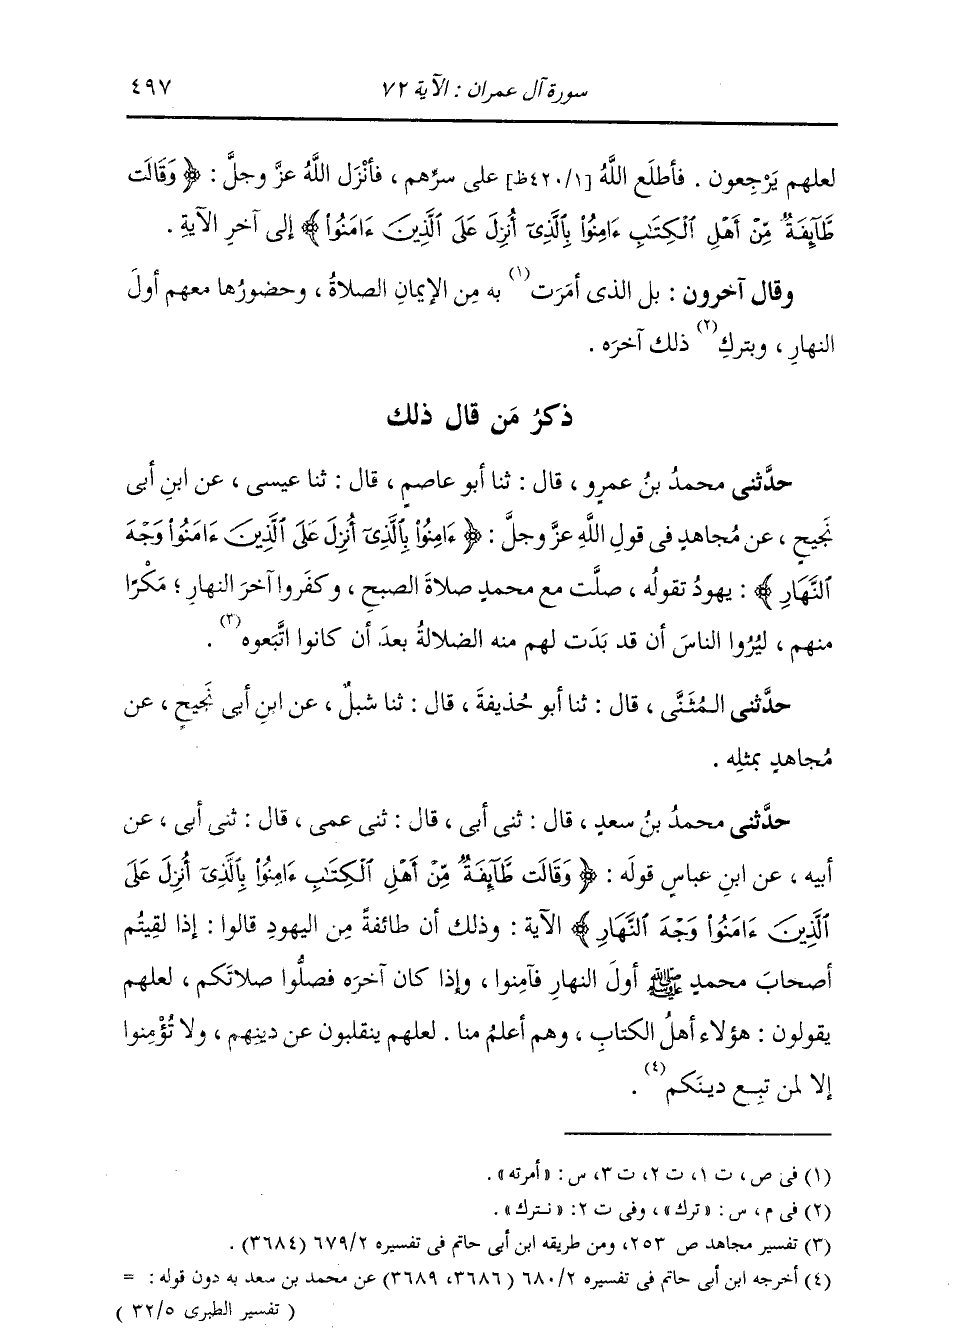 سورة آل عمران : الآية ٧٢
٤٩٧
لعلهم يَرْجِعون . فأطلَع اللَّهُ [٤٢٠/١ظ] على سرِّهم ، فأنْزَل اللَّهُ عزَّ وجلَّ : ﴿ وَقَالَت
طَّآئِفَةٌ مِّنْ أَهْلِ ٱلْكِتَٰبِ ءَامِنُواْ بِٱلَّذِىٓ أُنزِلَ عَلَى ٱلَّذِينَ ءَامَنُواْ ﴾ إلى آخرِ الآيةِ .
وقال آخرون : بل الذى أمَرَت(١) به مِن الإيمانِ الصلاةُ ، وحضورُها معهم أولَ
النهارِ ، وبتركِ(٢) ذلك آخرَه .
ذكرُ مَن قال ذلك
حدَّثنى محمدُ بنُ عمرٍو ، قال : ثنا أبو عاصمٍ ، قال : ثنا عيسى ، عن ابنِ أبى
نَجيحٍ ، عن مُجاهدٍ فى قولِ اللَّهِ عزَّ وجلَّ : ﴿ ءَامِنُواْ بِٱلَّذِىٓ أُنزِلَ عَلَى ٱلَّذِينَ ءَامَنُواْ وَجْهَ
ٱلنَّهَارِ ﴾ : يهودُ تقولُه ، صلَّت مع محمدٍ صلاةَ الصبحِ ، وكفَروا آخرَ النهارِ ؛ مَكْرًا
منهم ، ليُرُوا الناسَ أن قد بَدَت لهم منه الضلالةُ بعدَ أن كانوا اتَّبَعوه(٣) .
حدَّثنى المُثَنَّى ، قال : ثنا أبو حُذيفةَ ، قال : ثنا شبلٌ ، عن ابنِ أبى نَجيحٍ ، عن
مُجاهدٍ بمثلِه .
حدَّثنى محمدُ بنُ سعدٍ ، قال : ثنى أبى ، قال : ثنى عمى ، قال : ثنى أبى ، عن
أبيه ، عن ابنِ عباسٍ قولَه : ﴿ وَقَالَت طَّآئِفَةٌ مِّنْ أَهْلِ ٱلْكِتَٰبِ ءَامِنُواْ بِٱلَّذِىٓ أُنزِلَ عَلَى
ٱلَّذِينَ ءَامَنُواْ وَجْهَ ٱلنَّهَارِ ﴾ الآية : وذلك أن طائفةً مِن اليهودِ قالوا : إذا لقِيتُم
أصحابَ محمدٍ ﷺ أولَ النهارِ فآمِنوا ، وإذا كان آخرَه فصلُّوا صلاتَكم ، لعلهم
يقولون : هؤلاء أهلُ الكتابِ ، وهم أعلمُ منا . لعلهم ينقلبون عن دينِهم ، ولا تُؤْمِنوا
إلا لمن تبِع دينَكم(٤) .
(١) فى ص، ت ١، ت ٢، ت ٣، س : «أمرته» .
(٢) فى م، س : «ترك»، وفى ت ٢: «نترك» .
(٣) تفسير مجاهد ص ٢٥٣، ومن طريقه ابن أبى حاتم فى تفسيره ٦٧٩/٢ (٣٦٨٤) .
(٤) أخرجه ابن أبى حاتم فى تفسيره ٦٨٠/٢ (٣٦٨٦، ٣٦٨٩) عن محمد بن سعد به دون قوله : =
( تفسير الطبرى ٣٢/٥ )